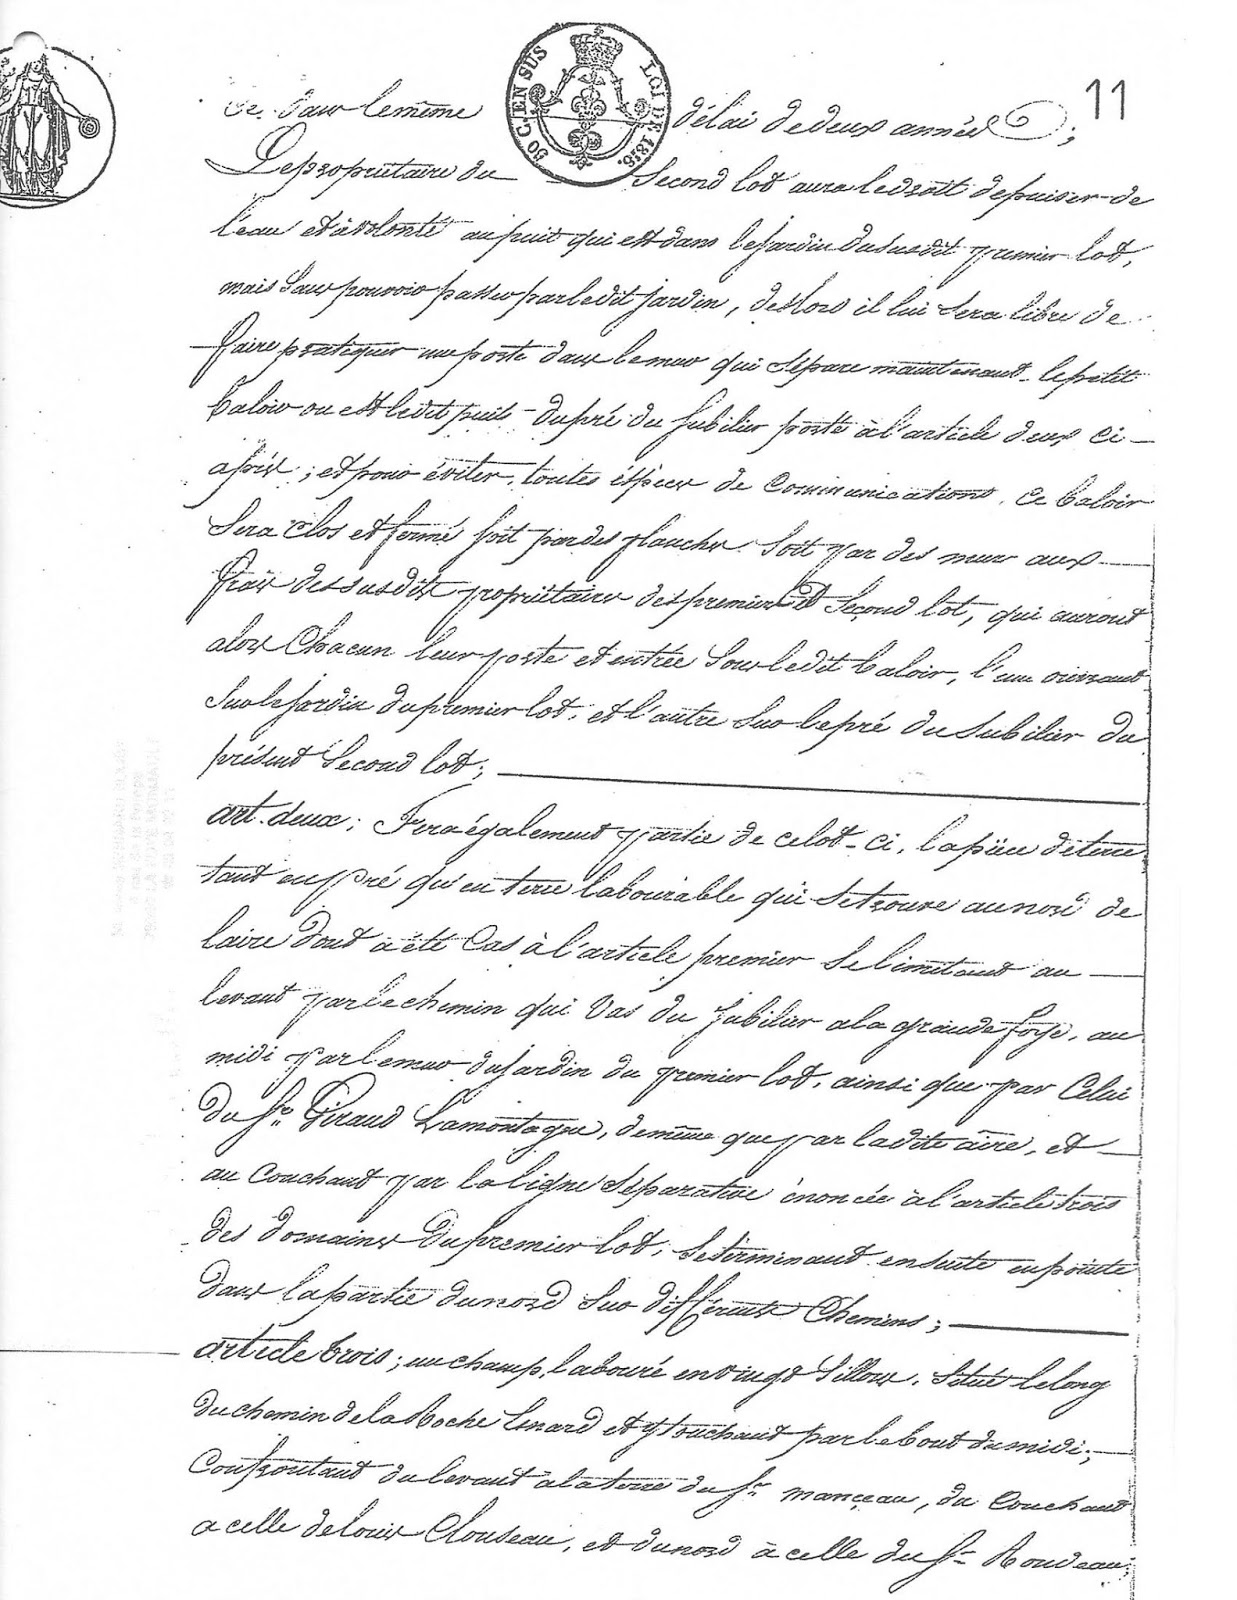 11
50 C. EN SUS LOI DE 1816.
et dans le même délai de deux années ;
Le propriétaire du Second lot aura le droit de puiser de
l'eau et à volonté au puit qui est dans le jardin du susdit premier lot,
mais sans pouvoir passer par le dit jardin, des lors il lui sera libre de
faire pratiquer une porte dans le mur qui sépare maintenant le petit
baloir ou est le dit puits du pré du fubilier porté à l'article deux ci-
après ; et pour éviter toutes espèces de communications, ce baloir
sera clos et fermé soit par des planches soit par des murs aux
frais des susdits propriétaires des premier et second lot, qui auront
alors chacun leur porte et entrée sous le dit baloir, l'une
sur le jardin du premier lot, et l'autre sur le pré du fubilier du
présent second lot ;
art. deux ; Fera également partie de ce lot-ci, la pièce de terre
tant en pré qu'en terre labourable qui se trouve au nord de
laire dont a été cas à l'article premier se limitant au
levant par le chemin qui vas du fubilier a la grande forge, au
midi par le mur du jardin du premier lot, ainsi que par celui
du Sr. Giraud Lamontagne, de même que par la dite aire, et
au couchant par la ligne séparative énoncée à l'article trois
des domaines du premier lot, se terminant ensuite en pointe
dans la partie du nord sur différents chemins ;
article trois ; un champ labouré en vingt sillons, situé le long
du chemin de la Roche Lenard et y touchant par le bout du midi ;
confrontant du levant a la terre du Sr. manceau, du couchant
a celle de louis Clouseau, et du nord à celle du Sr. Rondeau ;